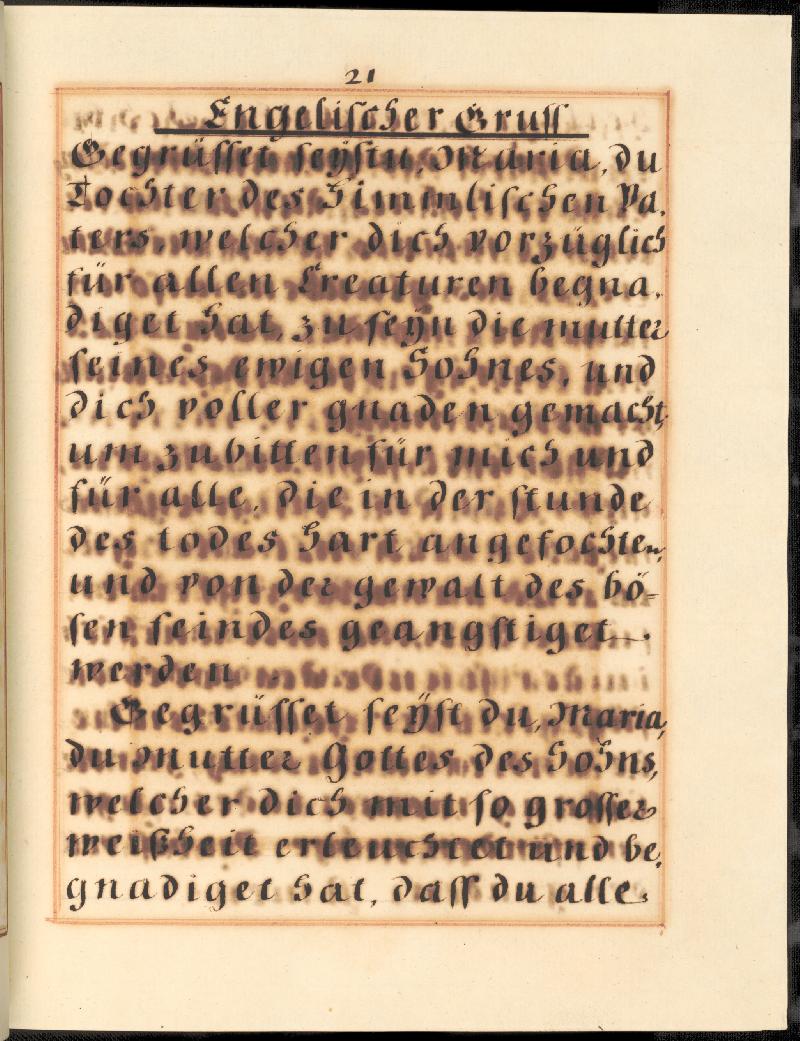 21
Engelischer Gruss
Gegrüsset seÿstu, Maria, du
Tochter des himmlischen Va,
ters, welcher dich vorzüglich
für allen Creaturen begna,
diget hat, zu seÿn die mutter
seines ewigen Sohnes, und
dich voller gnaden gemacht,
um zubitten für mich und
für alle, die in der stunde
des todes hart angefochten,
und von der gewalt des bö-
sen feindes geangstiget
werden
Gegrüsset seÿst du, Maria,
du Mutter Gottes des Sohns,
welcher dich mit so grosser
weißheit erleuchtet und be,
gnadiget hat, dass du alle,